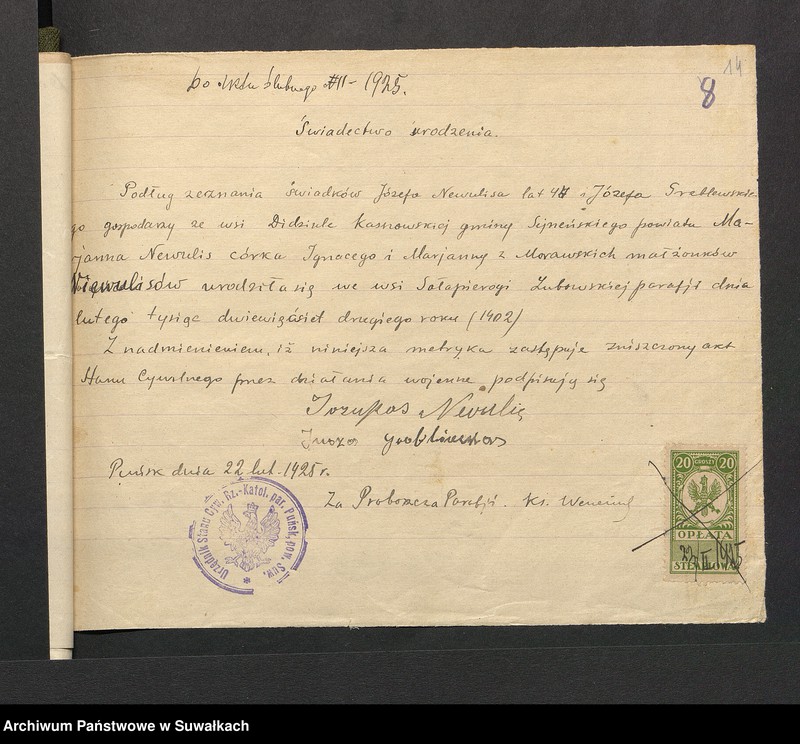 Do Aktu ślubnego II - 1925.
14
8
Świadectwo urodzenia.
Podług zeznania świadków Józefa Newulisa lat 47 i Józefa Greblewskie-
go gospodarzy ze wsi Didziule Kasnowskiej gminy Sejneńskiego powiatu Ma-
rjanna Newulis córka Ignacego i Marjanny z Morawskich małżonków
Niewulisów urodziła się we wsi Sałapierogi Lubowskiej parafji dnia
lutego tysiąc dwiewięćset drugiego roku (1902)
Z nadmienieniem, iż niniejsza metryka zastępuje zniszczony akt
Stanu Cywilnego przez działania wojenne podpisują się
Jozupas Newulis
Juozas
Puńsk dnia 22 lut. 1925 r.
Za Proboszcza Parafji. Ks.
Urzędnik Stanu Cyw. Rz.-Katol. par. Puńsk, pow. Suw.
20 GROSZY 20
OPŁATA
STEMPLOWA
22/II 1925
Archiwum Państwowe w Suwałkach